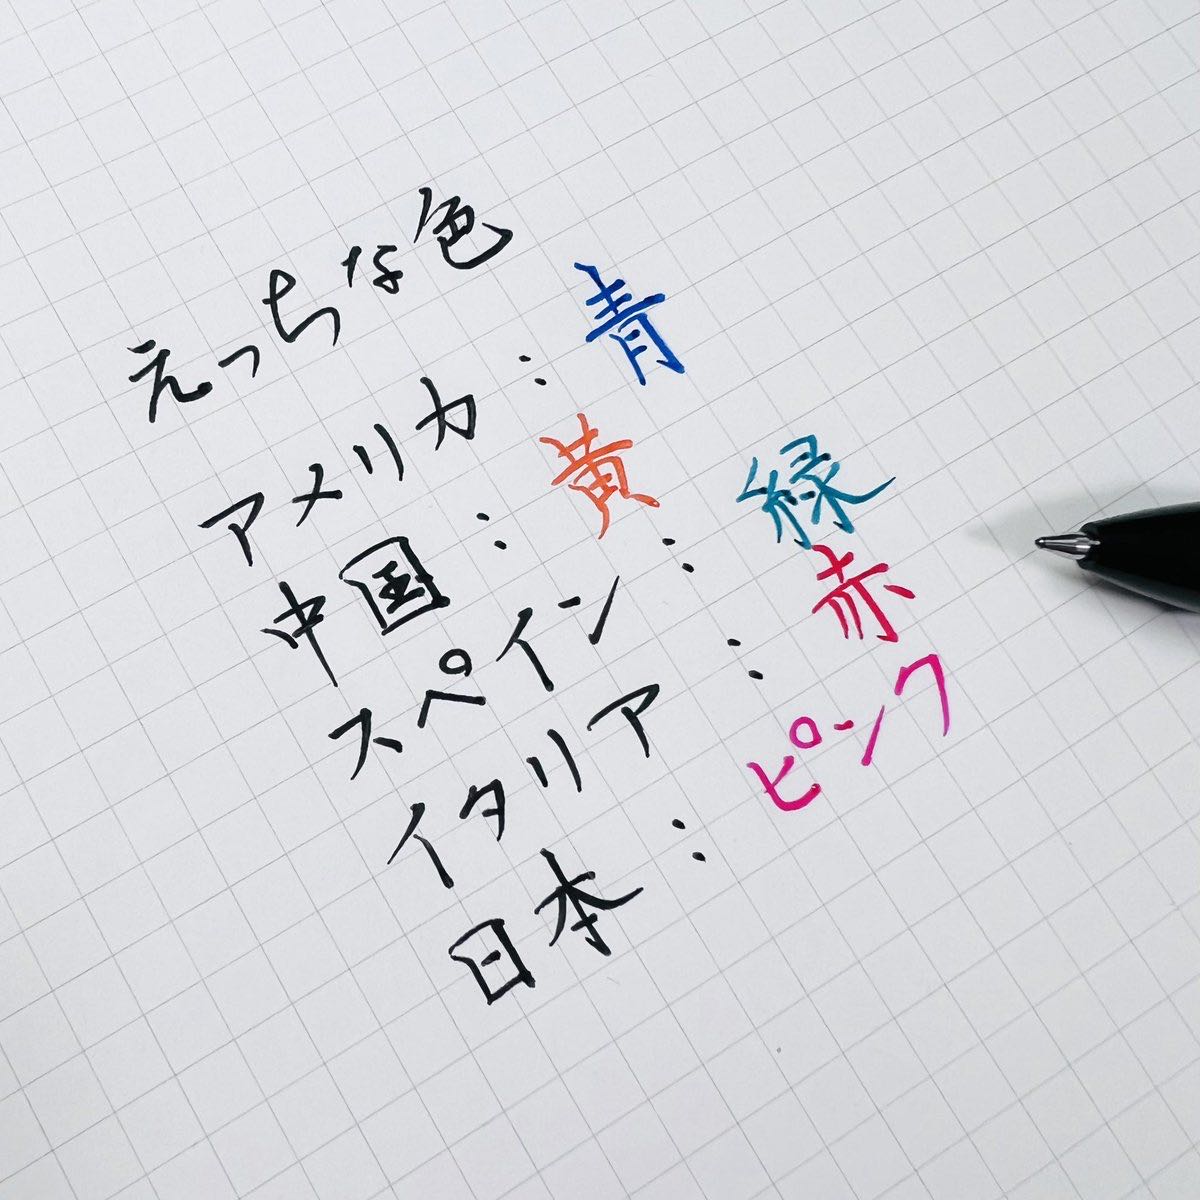 えっちな色
アメリカ：青
中国：黄
スペイン：緑
イタリア：赤
日本：ピンク